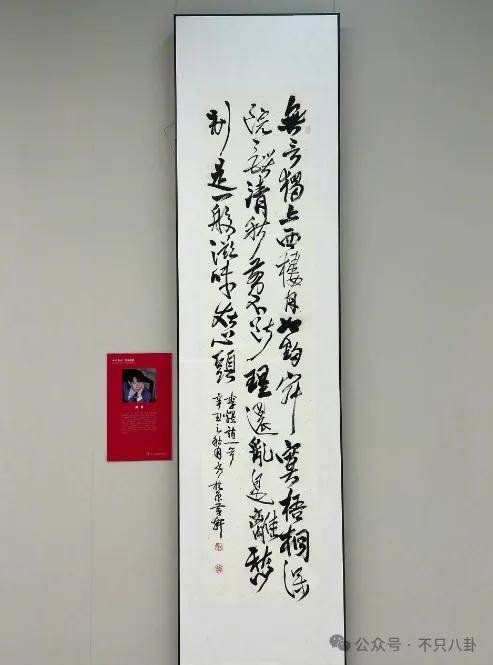 無言獨上西樓月如鈎寂寞梧桐深
院鎖清秋剪不斷理還亂是離愁
別是一般滋味在心頭
李煜詞一首
辛丑之秋
公众号 · 不只八卦